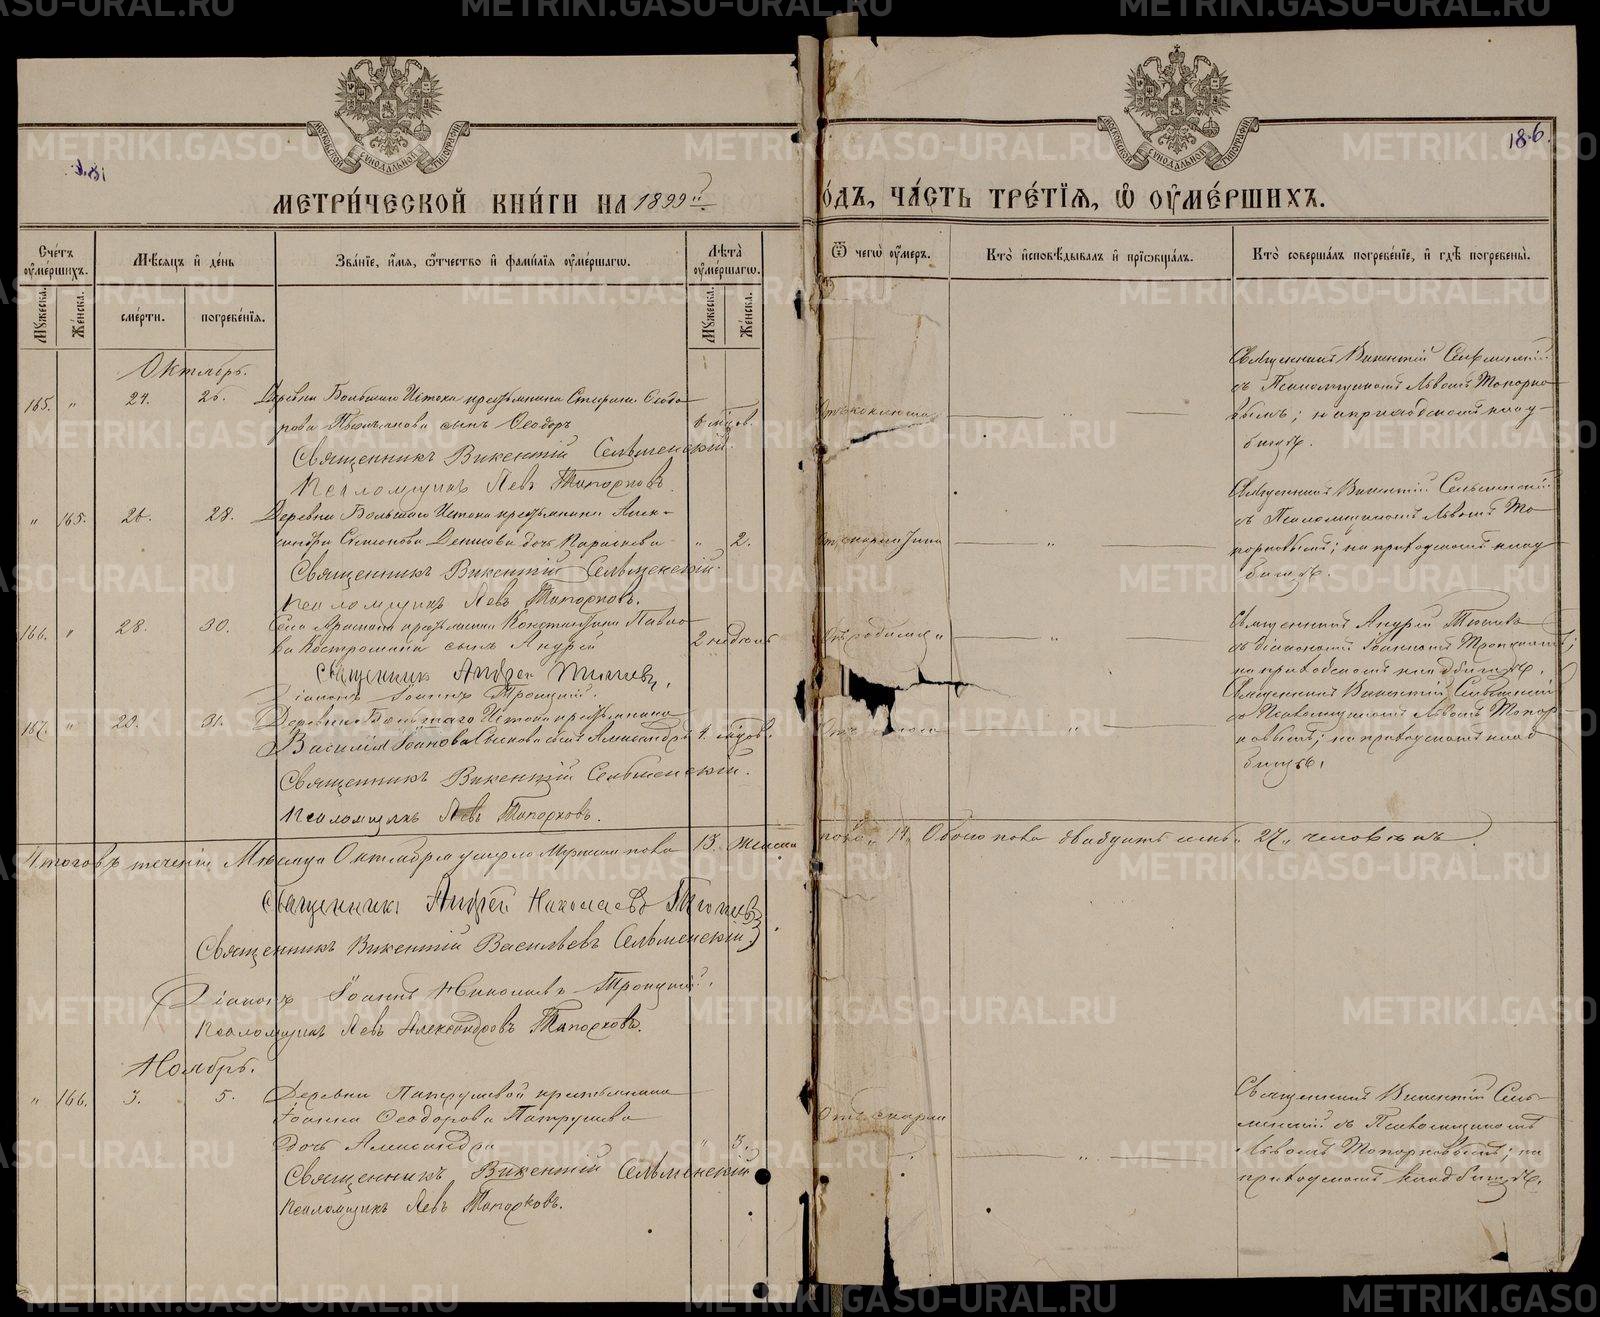 METRIKI.GASO-URAL.RU
186.
МОСКОВСКОЙ СУНОДАЛЬНОЙ ТИПОГРАФІИ
МЕТРИ́ЧЕСКОЙ КНИ́ГИ НА 1899й
О́ДЪ, ЧА́СТЬ ТРЕ́ТІЯ, Ѽ ОУ҆МЕ́РШИХЪ.
Сче́тъ оу҆ме́ршихъ.
Мꙋ́жеска.
Же́нска.
Мѣ́сѧцъ и҆ де́нь
сме́рти.
погребе́нїѧ.
Зва́нїе, и҆́мѧ, ѻ҆́тчество и҆ фами́лїѧ оу҆ме́ршагѡ.
Лѣ́та оу҆ме́ршагѡ.
Мꙋ́жеска.
Же́нска.
Ѿ чегѡ̀ оу҆́меръ.
Кто̀ и҆сповѣ́дывалъ и҆ прїѡбща́лъ.
Кто̀ соверша́лъ погребе́нїе, и҆ гдѣ̀ погребены̀.
Октябрь.
165. " 24. 26. Деревни Большаго Истока крестьянина Стефана Ѳеодо-
рова сынъ Ѳеодоръ 6 мѣс. Отъ коклюша
Священникъ Викентій Сельменскій.
Псаломщикъ Левъ Топорковъ.
Священникъ Викентій Сельменскій
съ Псаломщикомъ Львомъ Топорко-
вымъ; на приходскомъ клад-
бищѣ.
" 165. 26. 28. Деревни Большаго Истока крестьянина Алек-
сандра Симеонова Денисова дочь Параскева " 2.
Священникъ Викентій Сельменскій.
Псаломщикъ Левъ Топорковъ.
Священникъ Викентій Сельменскій
съ Псаломщикомъ Львомъ То-
порковымъ; на приходскомъ клад-
бищѣ.
166. " 28. 30. Села Арамили крестьянина Константина Павло-
ва Костромина сынъ Андрей 2 недѣль
Священникъ Андрей
Діаконъ Іоаннъ Троицкій.
Священникъ Андрей
съ діакономъ Іоанномъ Троицкимъ;
на приходскомъ кладбищѣ.
167. " 29. 31. Деревни Большаго Истока крестьянина
Василія Іоанова сынъ Александръ 4.
Священникъ Викентій Сельменскій.
Псаломщикъ Левъ Топорковъ.
Священникъ Викентій Сельменскій
съ Псаломщикомъ Львомъ Топор-
ковымъ; на приходскомъ клад
бищѣ.
Итого въ теченіи Мѣсяца Октября умерло Мужеска пола 13. Женска пола 14. Обоего пола двадцать семь 27 человѣкъ.
Священникъ Андрей Николаевъ
Священникъ Викентій Васильевъ Сельменскій.
Діаконъ Іоаннъ Николаевъ Троицкій.
Псаломщикъ Левъ Александровъ Топорковъ.
Ноябрь.
" 166. 3. 5. Деревни Патрушевой крестьянина
Іоанна Ѳеодорова Патрушева
дочь Александра " 3.
Священникъ Викентій Сельменскій
Псаломщикъ Левъ Топорковъ.
Священникъ Викентій Сель-
менскій съ Псаломщикомъ
Львомъ Топорковымъ; на
приходскомъ кладбищѣ.